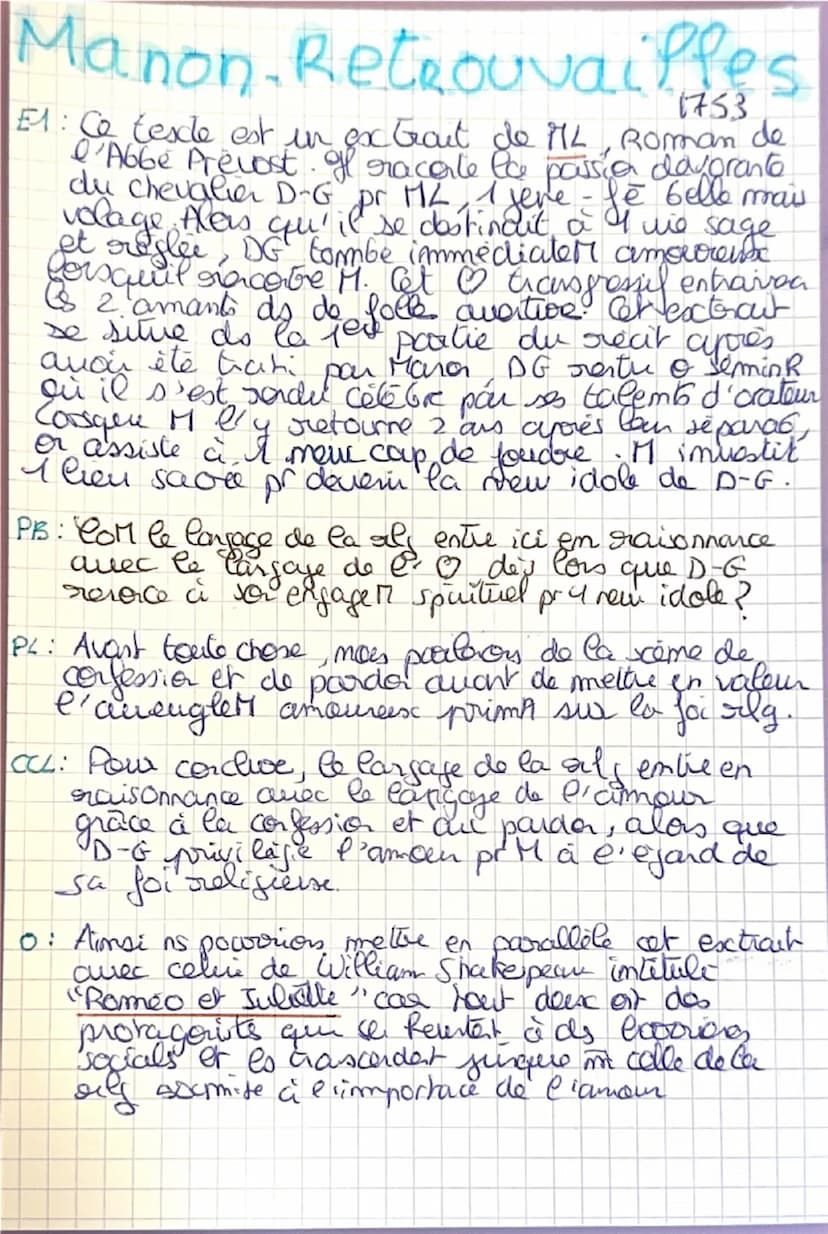 Manon - Retrouvailles
1753
E1 : Ce texte est un extrait de ML, Roman de
l'Abbé Prévost. Il raconte la passion
du chevalier D-G pr ML, 1 jeune - fē belle mais
volage. Alors qu'il se destinait à 1 vie sage
et réglée, DG tombe immédiateM amoureux
lorsqu'il rencontre M. Cet ♡ transgressif entrainera
ls 2 amants ds de folle aventure. Cet extrait
se situe ds la 1ère partie du récit après
avoir été trahi par Manon, DG rentre θ séminR
où il s'est rendu célèbre par ses talents d'orateur
Lorsque M l'y retourne 2 ans après leur séparaθ,
on assiste à 1 new coup de foudre. M investit
1 lieu sacré pr devenir la new idole de D-G.
PB : CoM le langage de la rlg entre ici en raisonnance
avec le langage de l' ♡ dès lors que D-G
renonce à son engageM spirituel pr 1 new idole ?
PL : Avant toute chose, nous parlerons de la scème de
confession et de pardon avant de mettre en valeur
l'aveugleM amoureux primA sur la foi rlg.
CCL : Pour conclure, le langage de la rlg entre en
raisonnance avec le langage de l'amour
grâce à la confession et au pardon, alors que
D-G privilégie l'amour pr M à l'égard de
sa foi religieuse.
O : Ainsi ns pourrions mettre en parallèle cet extrait
avec celui de William Shakespeare intitulé
"Roméo et Juliette" car tout deux ont des
protagonists qui se heurtent à ds
socials et ls transcendent jusque m̂ celle de la
rlg soumise à l'importance de l'amour